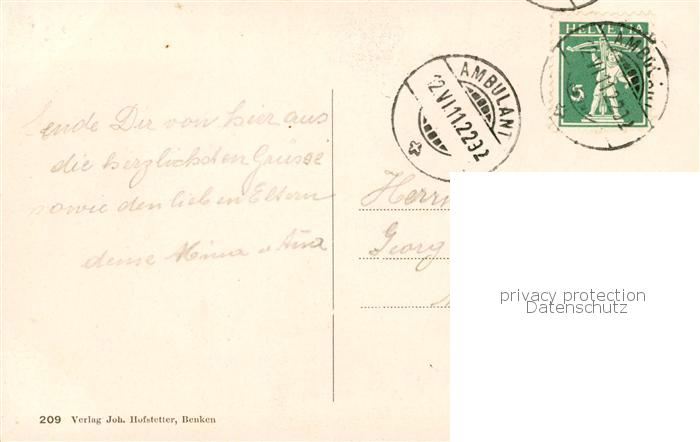 HELVETIA
5
AMBULANT
12.VI.11.22
AMBULANT
Sende Dir von hier aus
die herzlichsten Grüsse
sowie den lieben Eltern
deine Mina
Herrn
Georg
privacy protection
Datenschutz
209 Verlag Joh. Hofstetter, Benken